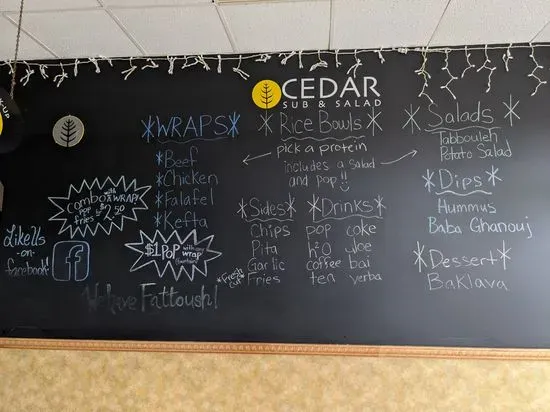 CEDAR
SUB & SALAD
*WRAPS*
*Beef
*Chicken
*Falafel
*Kefta
Combo with
a WRAP!
pop
fries $2.50
$1 Pop with any
wrap
Like Us
-on-
facebook!
f
We have Fattoush!
*Rice Bowls*
pick a protein
includes a salad
and pop!!
*Sides*
Chips
Pita
Garlic
*Fresh cut* Fries
*Drinks*
pop cake
h2o Joe
coffee bai
ten yerba
*Salads*
Tabbouleh
Potato Salad
*Dips*
Hummus
Baba Ghanouj
*Dessert*
Baklava